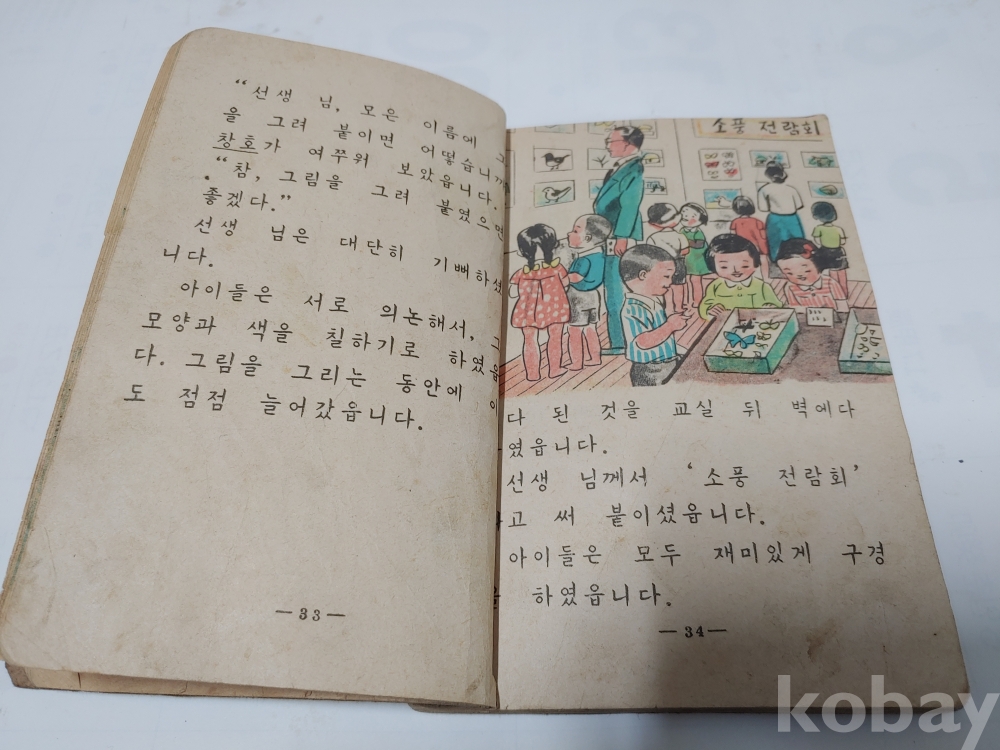 “선생 님, 모은 이름에 그
을 그려 붙이면 어떻습니까
창호가 여쭈워 보았읍니다.
“참, 그림을 그려 붙였으면
좋겠다.”
선생 님은 대단히 기뻐하셨
니다.
아이들은 서로 의논해서, 그
모양과 색을 칠하기로 하였읍
다. 그림을 그리는 동안에 이
도 점점 늘어갔읍니다.
—33—
소풍 전람회
다 된 것을 교실 뒤 벽에다
였읍니다.
선생 님께서 ‘소풍 전람회’
고 써 붙이셨읍니다.
아이들은 모두 재미있게 구경
을 하였읍니다.
—34—
kobay